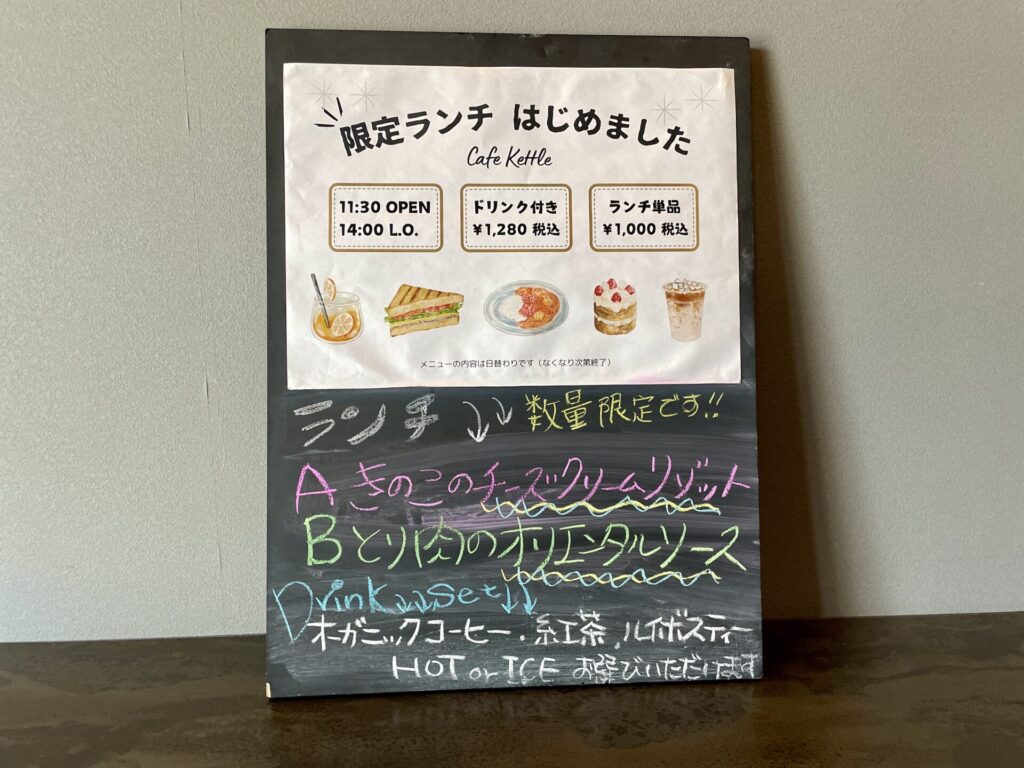 限定ランチ はじめました
Cafe Kettle
11:30 OPEN
14:00 L.O.
ドリンク付き
¥1,280 税込
ランチ単品
¥1,000 税込
メニューの内容は日替わりです（なくなり次第終了）
ランチ 数量限定です!!
A きのこのチーズクリームリゾット
B とり肉のオリエンタルソース
Drink Set
オーガニックコーヒー・紅茶,ルイボスティー
HOT or ICE お選びいただけます